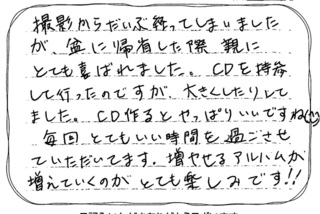 撮影からだいぶ経ってしまいました
が、盆に帰省した際 親に
とても喜ばれました。CDを持参
して行ったのですが、大きくしたりして
ました。CD作るとやっぱりいいですね
毎回 とてもいい時間を過ごさせ
ていただいてます。増やせるアルバムが
増えていくのが とても楽しみです!!